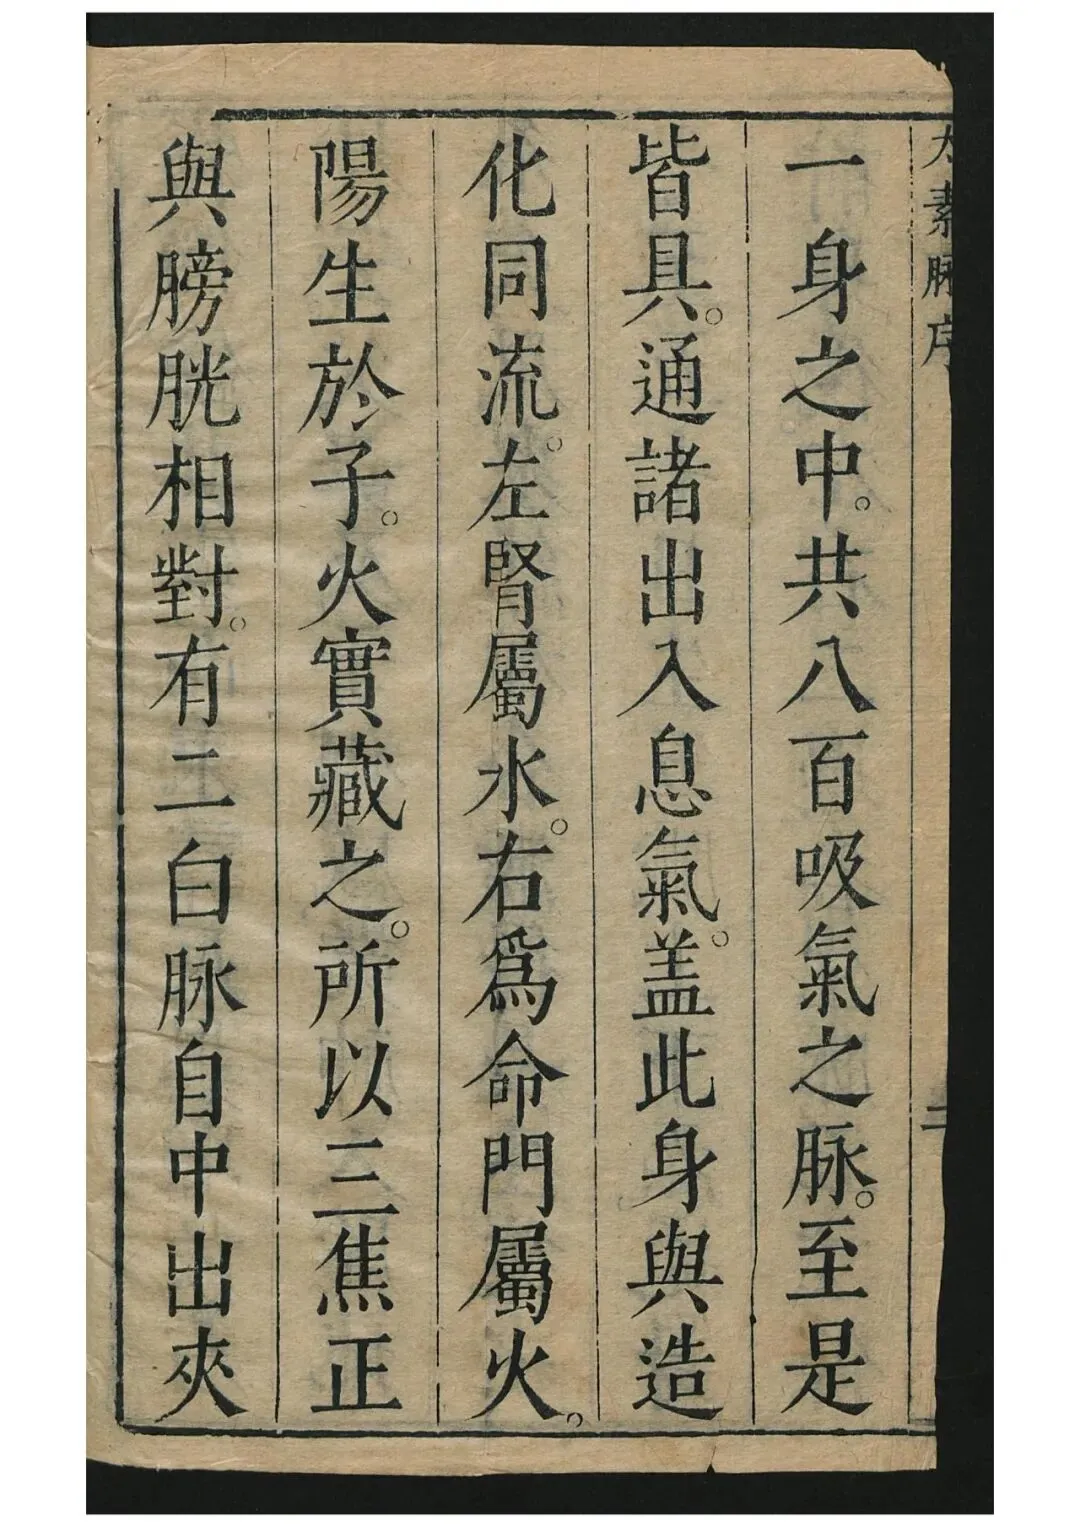 太素脉序
二
一身之中。共八百吸氣之脉。至是
皆具。通諸出入息氣。盖此身與造
化同流。左腎屬水。右爲命門屬火。
陽生於子。火實藏之。所以三焦正
與膀胱相對。有二白脉自中出夾